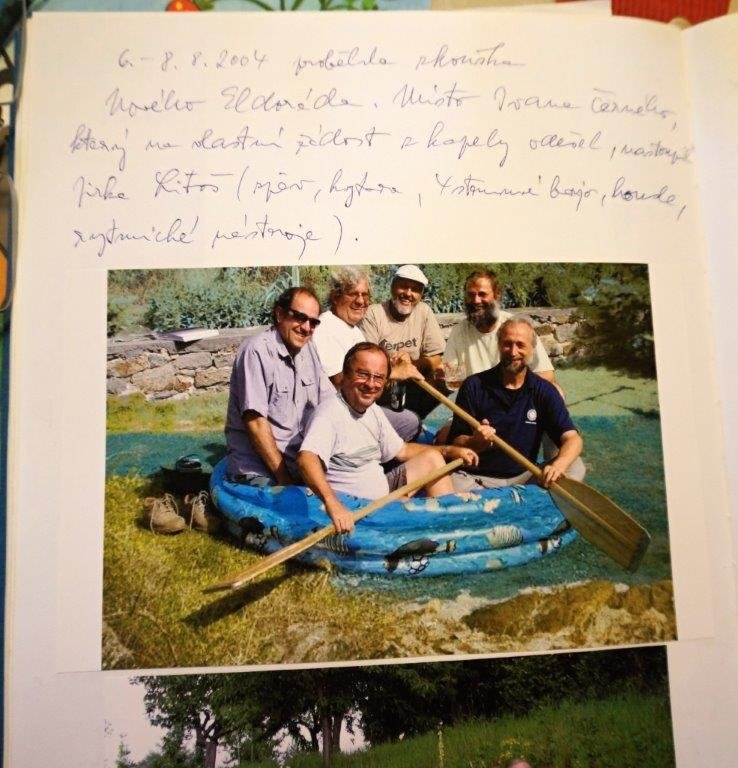 6.–8.8.2004 proběhla zkouška
Nového Eldoráda. Místo Ivana Černého,
který na vlastní žádost z kapely odešel, nastoupil
Jirka Litoš (zpěv, kytara, 4strunné banjo, housle,
rytmické nástroje).
erpet